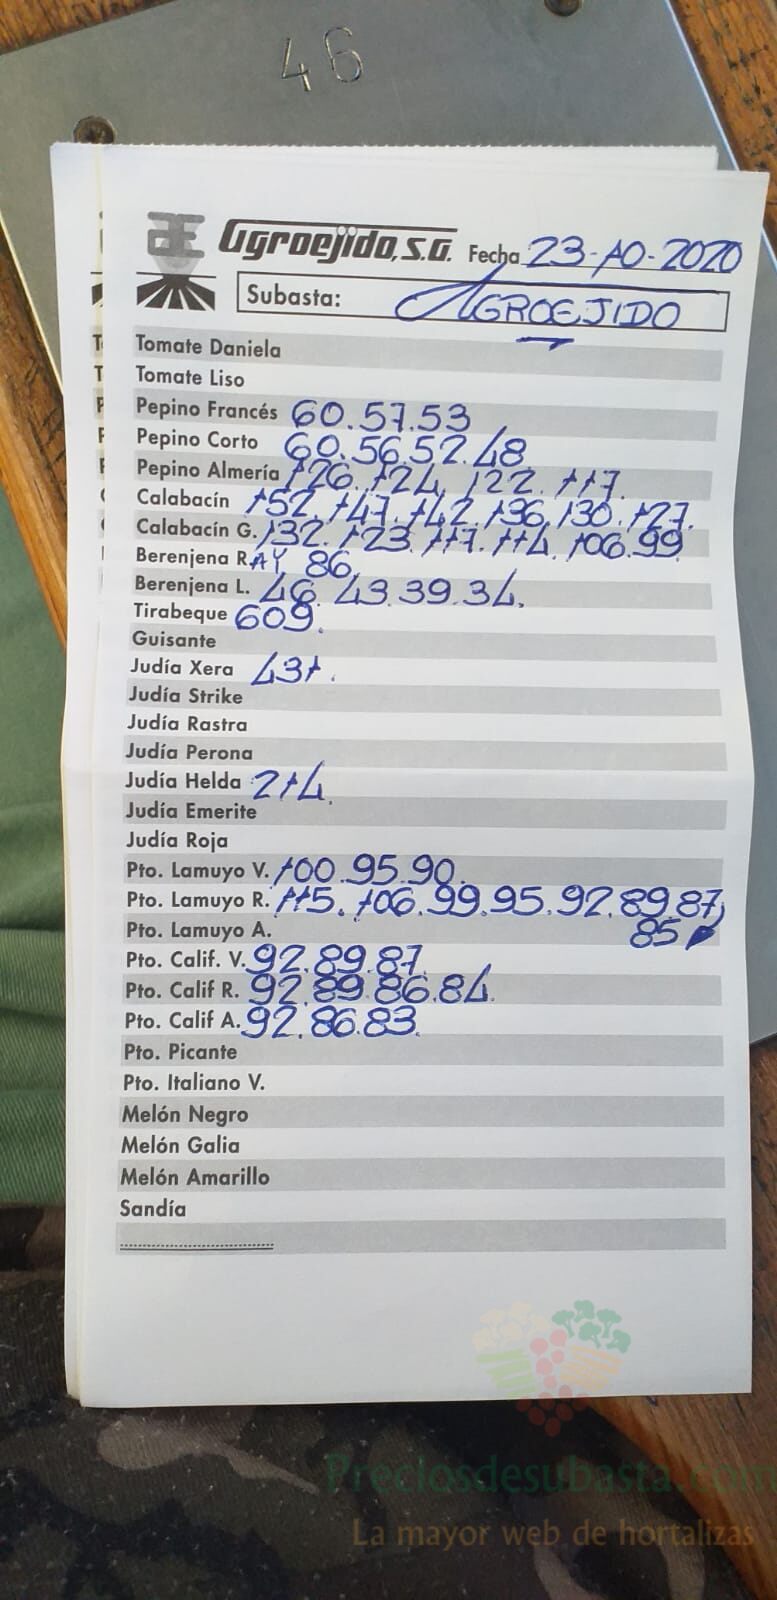 46
Agroejido, S.A. Fecha 23-10-2020
Subasta: AGROEJIDO
Tomate Daniela
Tomate Liso
Pepino Francés 60.57.53
Pepino Corto 60.56.52.48
Pepino Almería 126.124.122.117.
Calabacín 152.147.142.136.130.127.
Calabacín G. 132.123.117.114.106.99
Berenjena RAY 86.
Berenjena L. 46.43.39.34.
Tirabeque 609.
Guisante
Judía Xera 431.
Judía Strike
Judía Rastra
Judía Perona
Judía Helda 214.
Judía Emerite
Judía Roja
Pto. Lamuyo V. 100.95.90.
Pto. Lamuyo R. 115.106.99.95.92.89.87,
Pto. Lamuyo A. 85
Pto. Calif. V. 92.89.87.
Pto. Calif R. 92.89.86.84.
Pto. Calif A. 92.86.83.
Pto. Picante
Pto. Italiano V.
Melón Negro
Melón Galia
Melón Amarillo
Sandía
Preciosdesubasta.com
La mayor web de hortalizas